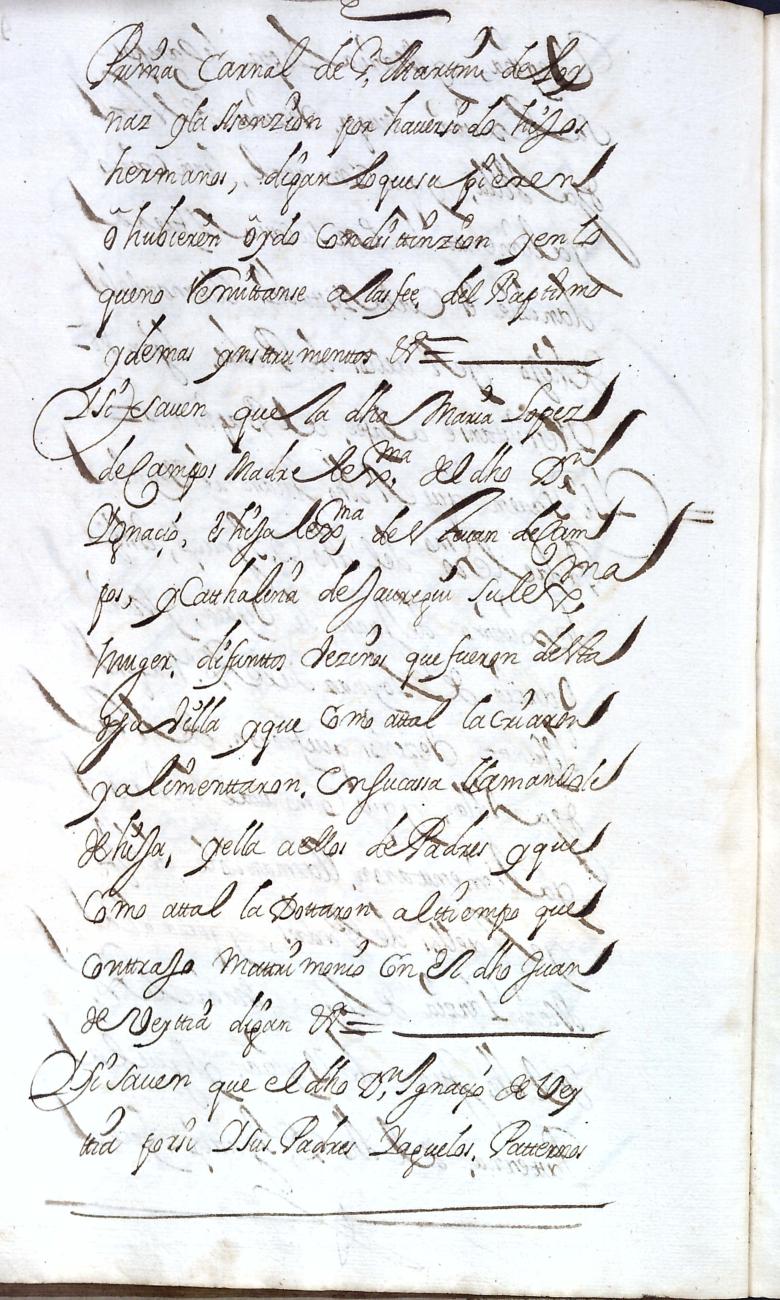 Prima Carnal de D.n Martin de Loy
naz y la Asenzion por haver sido hijos
hermanos, digan lo que supieren
o hubieren oydo Con distinzion y en lo
que no Remittanse a las fee, del Baptismo
y demas ynstrumentos &.a =
Y si saven que la dha Maria Lopez
de Campos Madre lex.ma del dho D.n
Ygnacio, es hija lex.ma de Cam
pos, y Catthalina de Jauregui su lex.ma
Muger. difunttos Vezinos que fueron de sta
dha Villa y que Como attal la criaron
y alimenttaron. En su cassa llamandole
de hija, y ella a ellos de Padres y que
Como attal la Dottaron al ttiempo que
Conttrajo Mattrimonio Con, El dho Juan
de Veyttia digan &.a =
Y si saven que el dho D.n Ygnacio de Vey
ttia por si Y sus Padres Y aguelos. Patternos